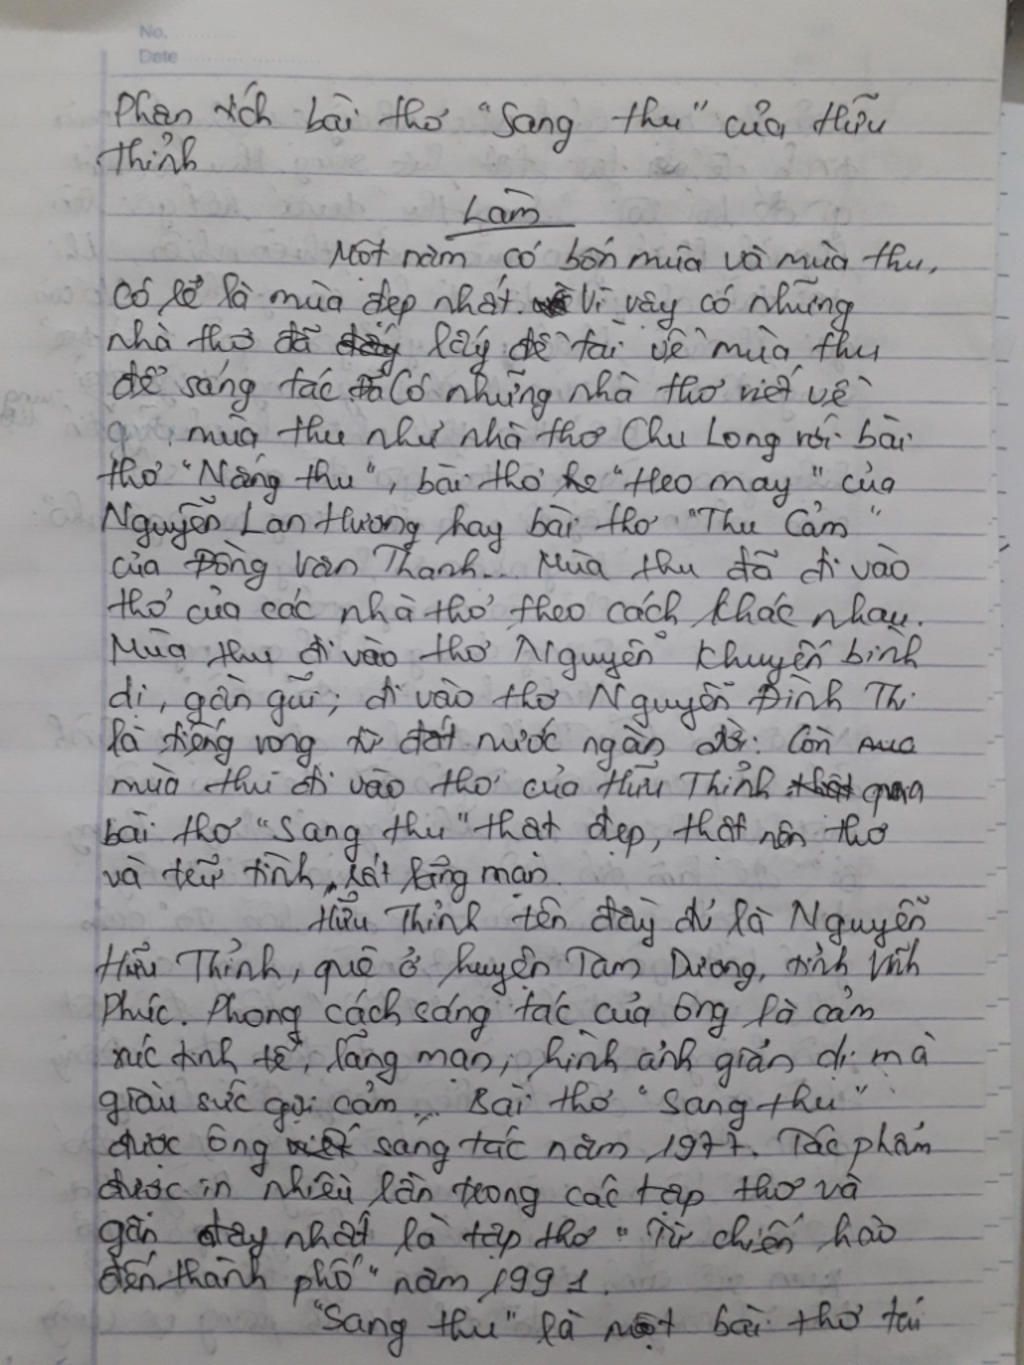 No.
Date
Phân tích bài thơ "Sang thu" của Hữu
Thỉnh
Làm
Một năm có bốn mùa và mùa thu,
có lẽ là mùa đẹp nhất. Vì vậy có những
nhà thơ đã lấy đề tài về mùa thu
để sáng tác. Có những nhà thơ viết về
mùa thu như nhà thơ Chu Long với bài
thơ "Nắng thu", bài thơ "Heo may" của
Nguyễn Lan Hương hay bài thơ "Thu Cảm"
của Đồng Văn Thanh... Mùa thu đã đi vào
thơ của các nhà thơ theo cách khác nhau.
Mùa thu đi vào thơ Nguyễn Khuyến bình
dị, gần gũi; đi vào thơ Nguyễn Đình Thi
là tiếng vọng từ đất nước ngàn đời. Còn
mùa thu đi vào thơ của Hữu Thỉnh qua
bài thơ "Sang thu" thật đẹp, thật nên thơ
và trữ tình, rất lãng mạn.
Hữu Thỉnh tên đầy đủ là Nguyễn
Hữu Thỉnh, quê ở huyện Tam Dương, tỉnh Vĩnh
Phúc. Phong cách sáng tác của ông là cảm
xúc tinh tế, lãng mạn, hình ảnh giản dị mà
giàu sức gợi cảm... Bài thơ "Sang thu"
được ông sáng tác năm 1977. Tác phẩm
được in nhiều lần trong các tập thơ và
gần đây nhất là tập thơ "Từ chiến hào
đến thành phố" năm 1991.
"Sang thu" là một bài thơ tái